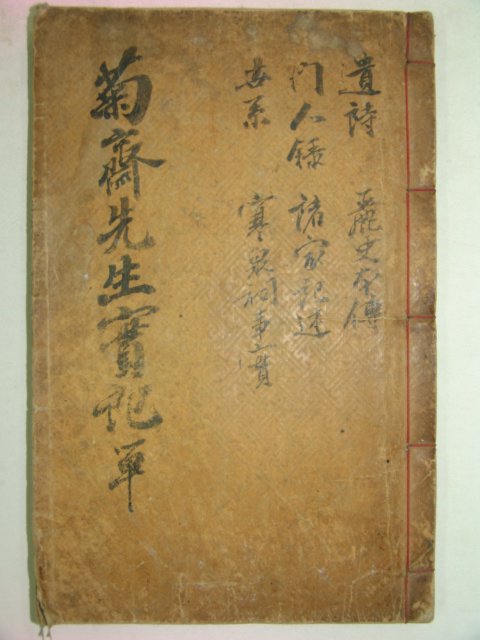 遺詩 麗史本傳
門人錄 諸家記述
世系 寒泉祠事實
菊齋先生實記單